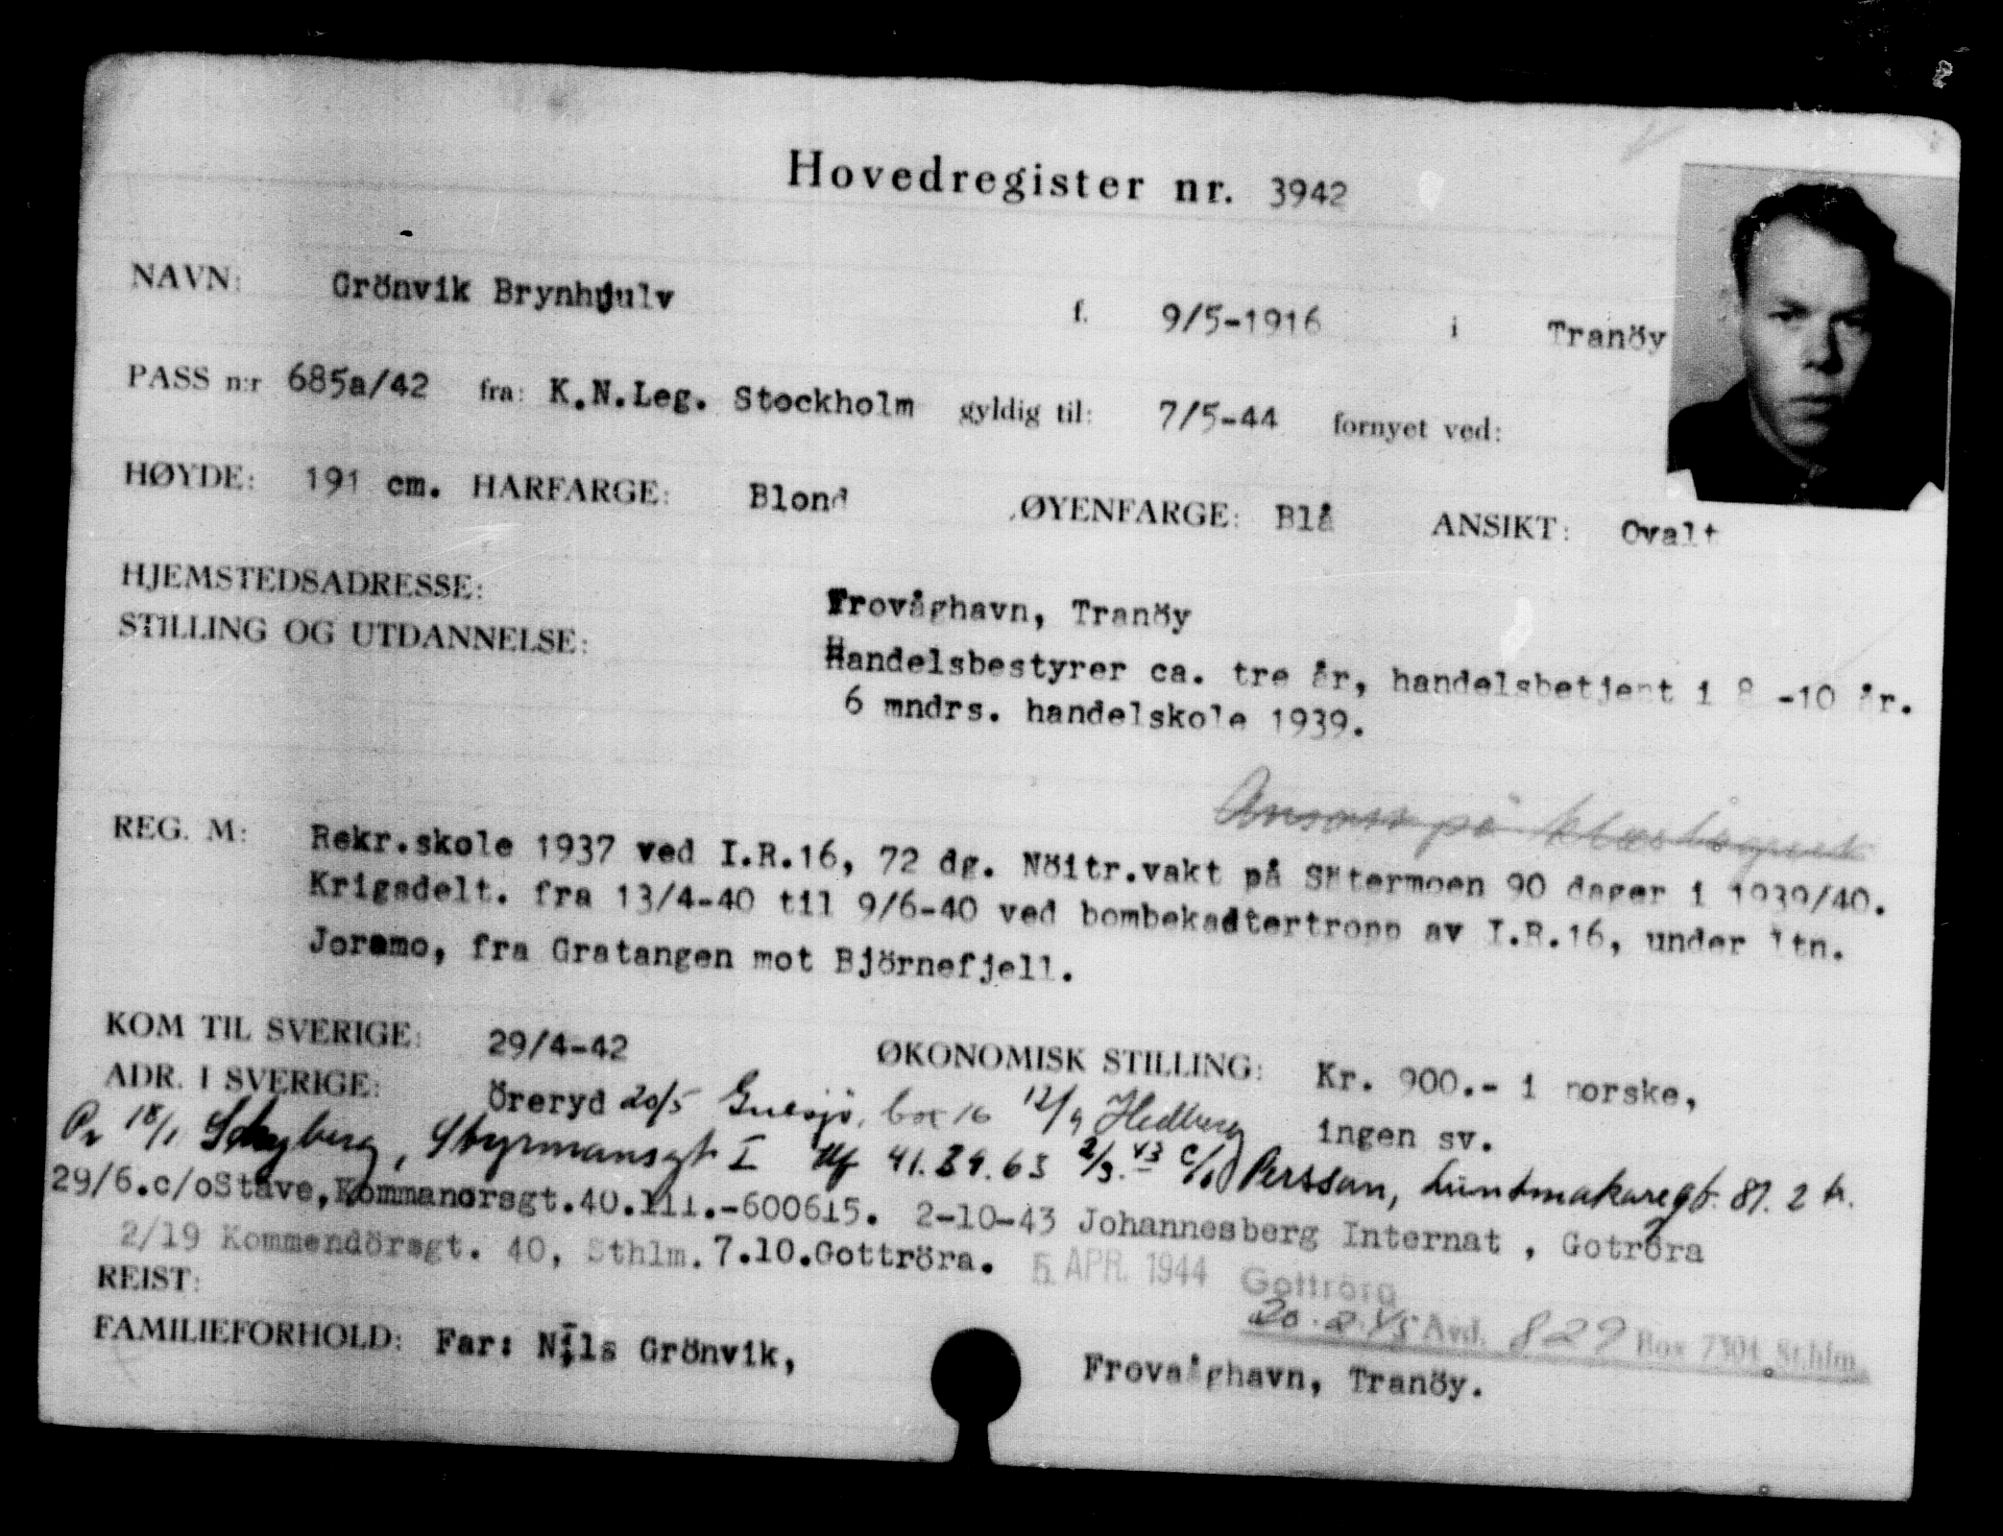 Hovedregister nr. 3942
NAVN: Grönvik Brynhjulv f. 9/5-1916 i Tranöy
PASS n:r 685a/42 fra: K.N.Leg. Stockholm gyldig til: 7/5-44 fornyet ved:
HØYDE: 191 cm. HARFARGE: Blond ØYENFARGE: Blå ANSIKT: Ovalt
HJEMSTEDSADRESSE: Frovåghavn, Tranöy
STILLING OG UTDANNELSE: Handelsbestyrer ca. tre år, handelsbetjent i 8 -10 år.
6 mndrs. handelskole 1939.
på
REG. M: Rekr.skole 1937 ved I.R.16, 72 dg. Nöitr.vakt på Sätermoen 90 dager i 1939/40.
Krigsdelt. fra 13/4-40 til 9/6-40 ved bombekastertropp av I.R.16, under ltn.
Joramo, fra Gratangen mot Björnefjell.
KOM TIL SVERIGE: 29/4-42 ØKONOMISK STILLING: Kr. 900.- i norske,
ADR. I SVERIGE: Öreryd 20/5 box 16 12/9 Hedberg ingen sv.
Pr 18/1 Schyberg, Styrmansgt I tlf 41.39.63 2/3.43 c/o Persson, Luntmakaregt. 87. 2 tr.
29/6.c/oStave,Kommandrsgt.40.III.-600615. 2-10-43 Johannesberg Internat , Gotröra
2/19 Kommendörsgt. 40, Sthlm. 7.10.Gottröra. 5. APR. 1944 Gottröra
REIST: 20.2.45 Avd. 829 Box 7301 Sthlm.
FAMILIEFORHOLD: Far: Nils Grönvik, Frovaåghavn, Tranöy.